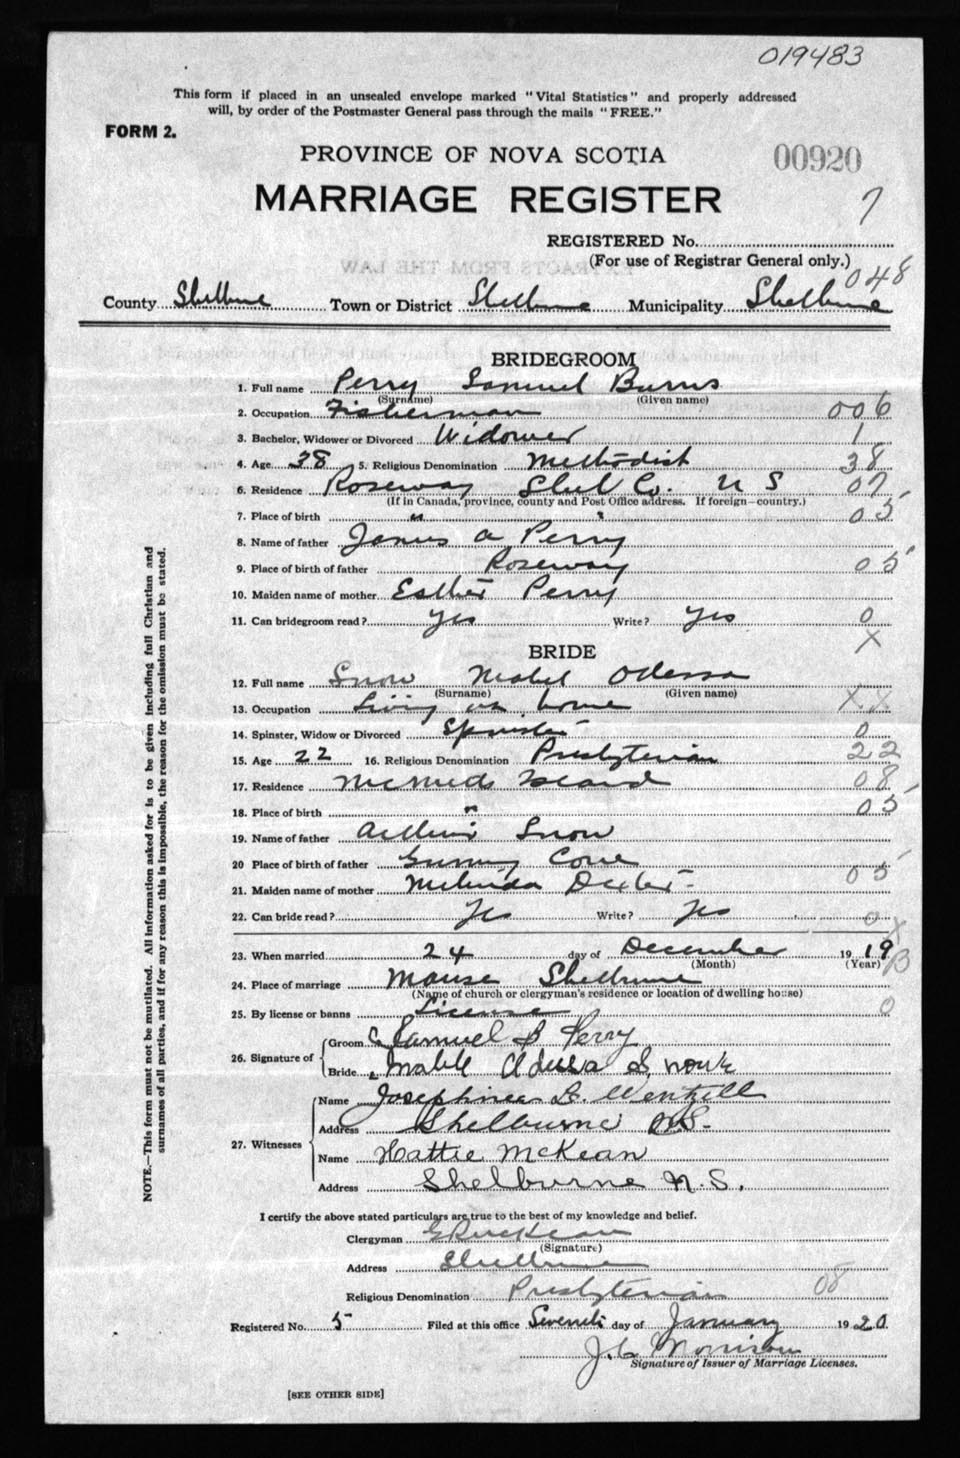 019483
This form if placed in an unsealed envelope marked "Vital Statistics" and properly addressed
will, by order of the Postmaster General pass through the mails "FREE."
FORM 2.
PROVINCE OF NOVA SCOTIA
00920
MARRIAGE REGISTER
7
REGISTERED No.
(For use of Registrar General only.)
048
County Shelburne Town or District Shelburne Municipality Shelburne
BRIDEGROOM
1. Full name Perry Samuel Burns
(Surname) (Given name)
2. Occupation Fisherman 006
3. Bachelor, Widower or Divorced Widower 1
4. Age 38 5. Religious Denomination Methodist 38
6. Residence Roseway Shel Co. N S 07
(If in Canada, province, county and Post Office address. If foreign—country.)
7. Place of birth " " 05
8. Name of father James A Perry
9. Place of birth of father Roseway 05
10. Maiden name of mother Esther Perry
11. Can bridegroom read? Yes Write? Yes 0
X
BRIDE
12. Full name Snow Mabel Odessa
(Surname) (Given name)
13. Occupation Living at home XX
14. Spinster, Widow or Divorced Spinster 0
15. Age 22 16. Religious Denomination Presbyterian 22
17. Residence Island 08
18. Place of birth " 05
19. Name of father Arthur Snow
20 Place of birth of father Gunning Cove 05
21. Maiden name of mother Melinda Dexter
22. Can bride read? Yes Write? Yes 0
X
23. When married 24 day of December 1919
(Month) (Year) B
24. Place of marriage Manse Shelburne
(Name of church or clergyman's residence or location of dwelling house)
25. By license or banns License 0
26. Signature of Groom Samuel B Perry
Bride Mable Odessa Snow
27. Witnesses Name Josephine Wentzell
Address Shelburne N.S.
Name Hattie McKean
Address Shelburne N.S.
I certify the above stated particulars are true to the best of my knowledge and belief.
Clergyman McKean
(Signature)
Address Shelburne
Religious Denomination Presbyterian 08
Registered No. 5 Filed at this office Seventh day of January 1920
J. C Morrison
Signature of Issuer of Marriage Licenses.
[SEE OTHER SIDE]
NOTE.—This form must not be mutilated. All information asked for is to be given including full Christian and
surnames of all parties, and if for any reason this is impossible, the reason for the omission must be stated.